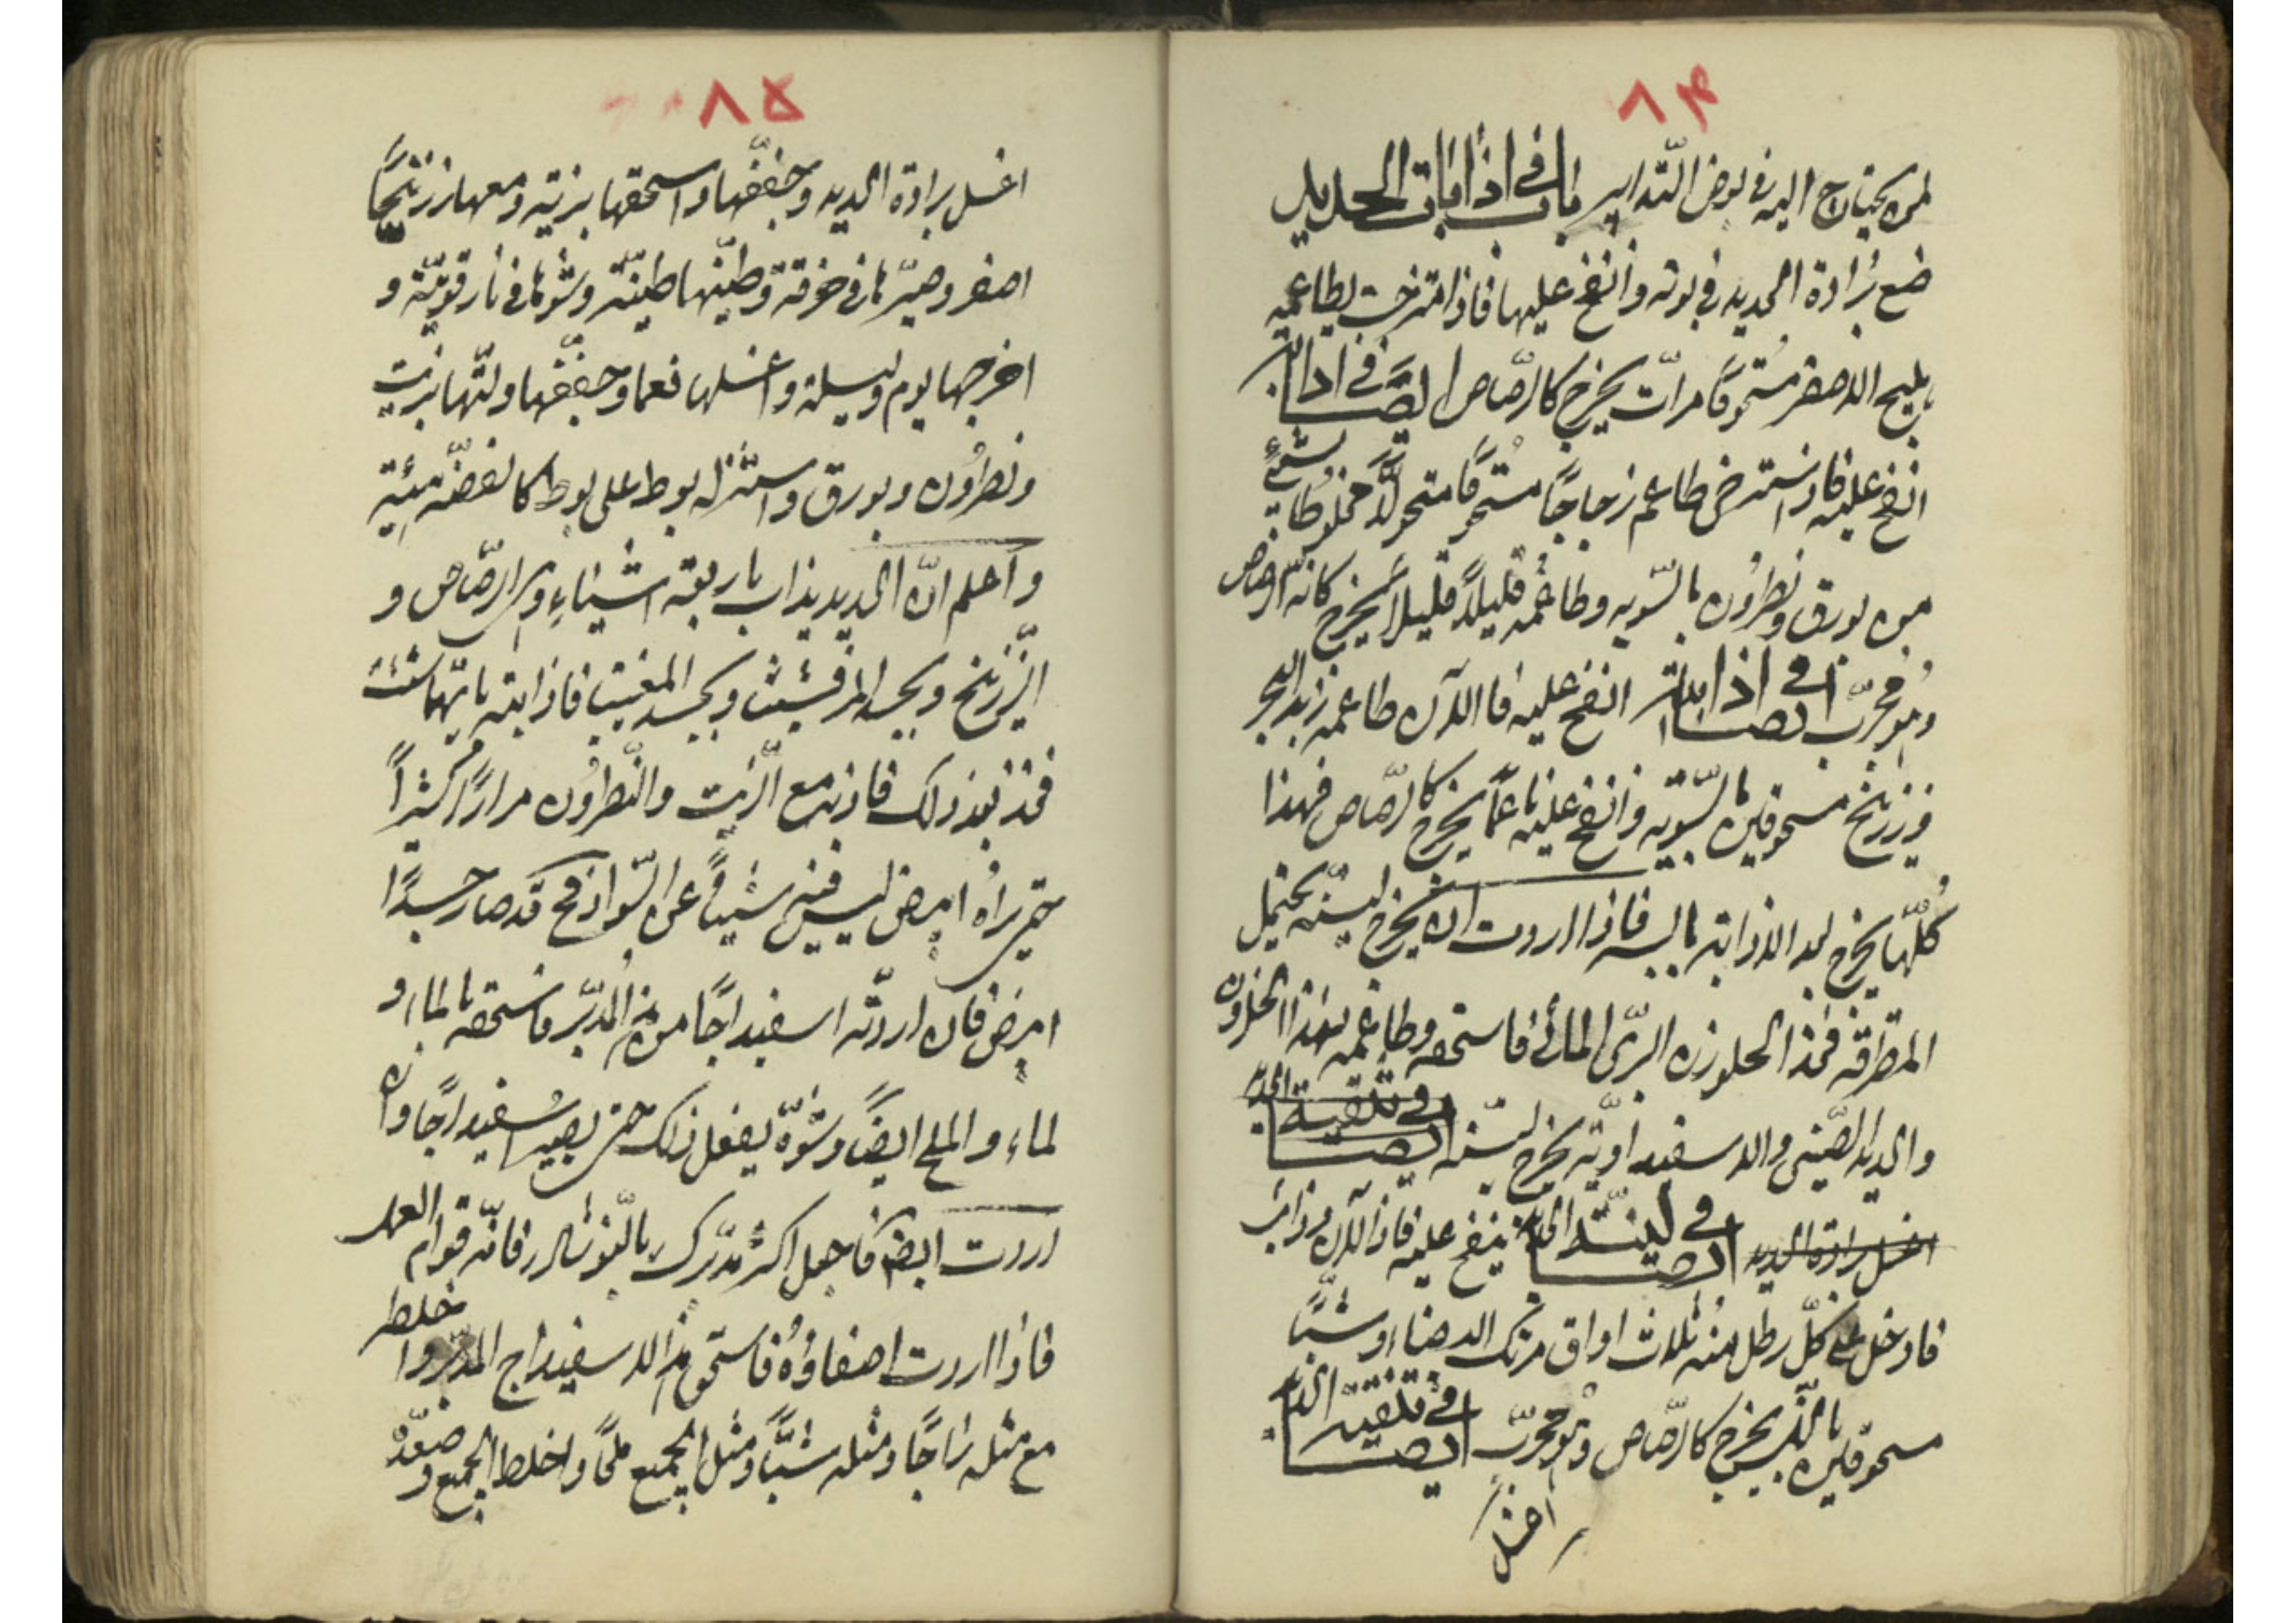 ٨٤
لمن يحتاج اليه في بعض التّدابير باب في اذابات الحديد
ضع بُرادة الحديد في بوته وانفخ عليها فاذا امتزجت بطاعمه
اهليلج الاصفر مسحوقًا مرات يخرج كالرّصاص ايضًا في اذابته
انفخ عليه فاذا استرخى طاعم زجاجًا مسحوقًا مخلوطًا بشئ
من بورق ونطرون بالسّويه وطاعمه قليلًا قليلًا يخرج كانّه الرصاص
وهو مجرّب ايضًا في اذابته انفخ عليه فاذا لان طاعمه زبد البحر
وزرنيخ مسحوقين بالسّويّه وانفخ عليه ناعمًا يخرج كالرّصاص فهذا
كلّها يخرج بعد الاذابته يابسه فاذا اردت ان يخرج ليّنه يحتمل
المطرقه فخذ الحلزون البرّى المائى فاستحقه وطاعمه بهذا الحلزون
والحديد الصّينى والاسفيداويّه يخرج ليّنه ايضًا في تنقية الحديد
اغسل برادة الحديد ايضًا في ليّنة الحديد ينفخ عليه فاذا لان وذاب
فادخل على كلّ رطل منه ثلاث اواق مرتك الاصفاء وشبًّا
مسحوقين يخرج كالرّصاص وهو مجرّب ايضًا في تنقيه الحديد
اغسل
٨٥
اغسل برادة الحديد وجفّفها واسحقها بزيته ومعها زرنيخًا
اصفر وصيّرها في خرقة وطيّنها طينة وشوها في نار قويّة و
اخرجها يوم وليلة واغسلها نعما وجفّفها ولتّها بزيت
ونطرون وبورق واستنزله بوط على بوط كالفضّه
واعلم انّ الحديد يذاب باربعة اشياء وهى الرّصاص و
الزّرنيخ وبجسد المرقشيثا وبجسد المغنيسا فاذابته بايّها شئت
فخذ بعد ذلك فاذبه مع الزّيت والنّطرون مرارًا كثيرًا
حتى تراه ابيض ليس فيه شيئًا عن السّواد فح قد صار جسدًا
ابيض فان اردته اسفيداجًا من هذا المدبّر فاسحقه بالماء و
لماء والملح ايضًا وشوّه يفعل ذلك حتى يصير اسفيداجًا وان
اردت ابيض فاجعل اكثر مدبّرك بالنّوشادر فانّه قوام العمل
فاذا اردت اصفاؤه فاستحق هذا الاسفيداج المدبّر واخلط
مع مثله زاجًا ومثله شبًّا ومثل الجميع ملحًا واخلط الجميع وصعّده